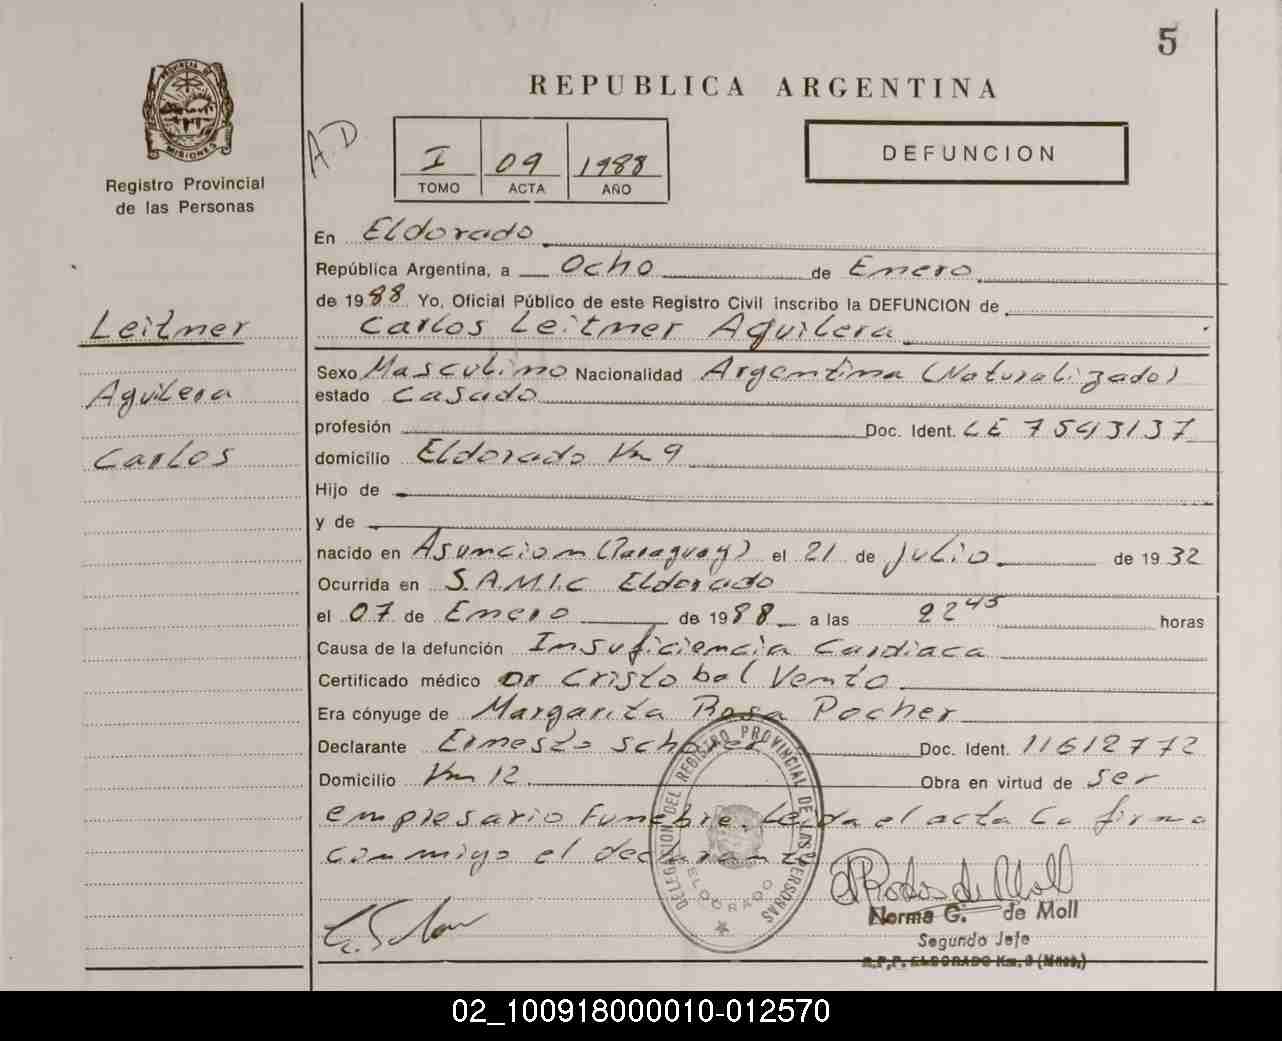 5
PROVINCIA DE
MISIONES
Registro Provincial
de las Personas
REPUBLICA ARGENTINA
A.D
I 09 1988
TOMO ACTA AÑO
DEFUNCION
En Eldorado
República Argentina, a Ocho de Enero
de 1988 Yo, Oficial Público de este Registro Civil inscribo la DEFUNCION de
Carlos Leitner Aguilera
Leitner
Aguilera
Carlos
Sexo Masculino Nacionalidad Argentina (Naturalizado)
estado Casado
profesión Doc. Ident. LE 7543137
domicilio Eldorado Km 9
Hijo de
y de
nacido en Asuncion (Paraguay) el 21 de julio de 1932
Ocurrida en S.A.M.I.C Eldorado
el 07 de Enero de 1988 a las 22 45 horas
Causa de la defunción Insuficiencia Cardiaca
Certificado médico DR Cristobal Vento
Era cónyuge de Margarita Rosa Pocher
Declarante Ernesto Doc. Ident. 11612772
Domicilio Km 12 Obra en virtud de ser
empresario Funebre. Leida el acta la firma
conmigo el declarante
DELEGACION DEL REGISTRO PROVINCIAL DE LAS PERSONAS
ELDORADO
Norma G. de Moll
Segundo Jefe
R.P.P. ELDORADO Km. 9 (Mnes.)
02_100918000010-012570